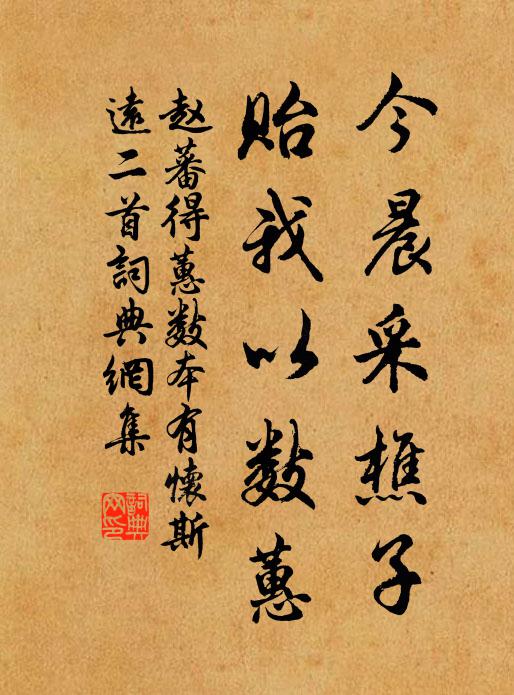 今晨采樵子
貽我以數蕙
赵蕃得蕙數本有懷斯
遠二首詞典網集
詞典
網印